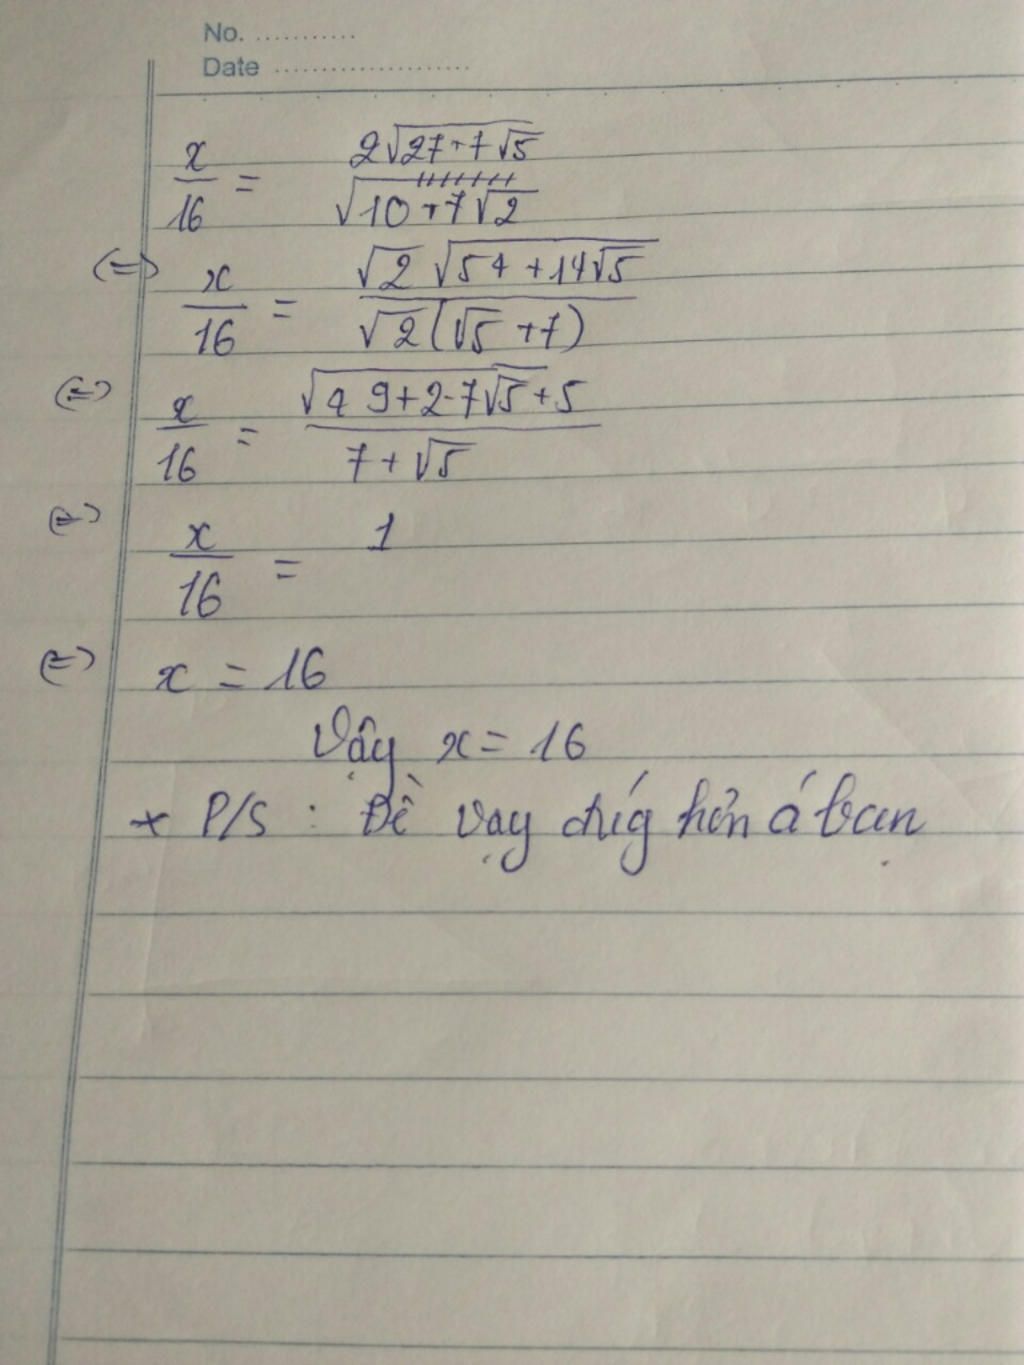 No. ...........
Date .....................
x/16 = 2√(27+7√5) / √10+7√2
(=) x/16 = √2 √(54+14√5) / √2(√5+7)
(=) x/16 = √(49+2·7√5+5) / 7+√5
(=) x/16 = 1
(=) x = 16
Vậy x = 16
* P/S : Đề vậy đúg hơn á bạn